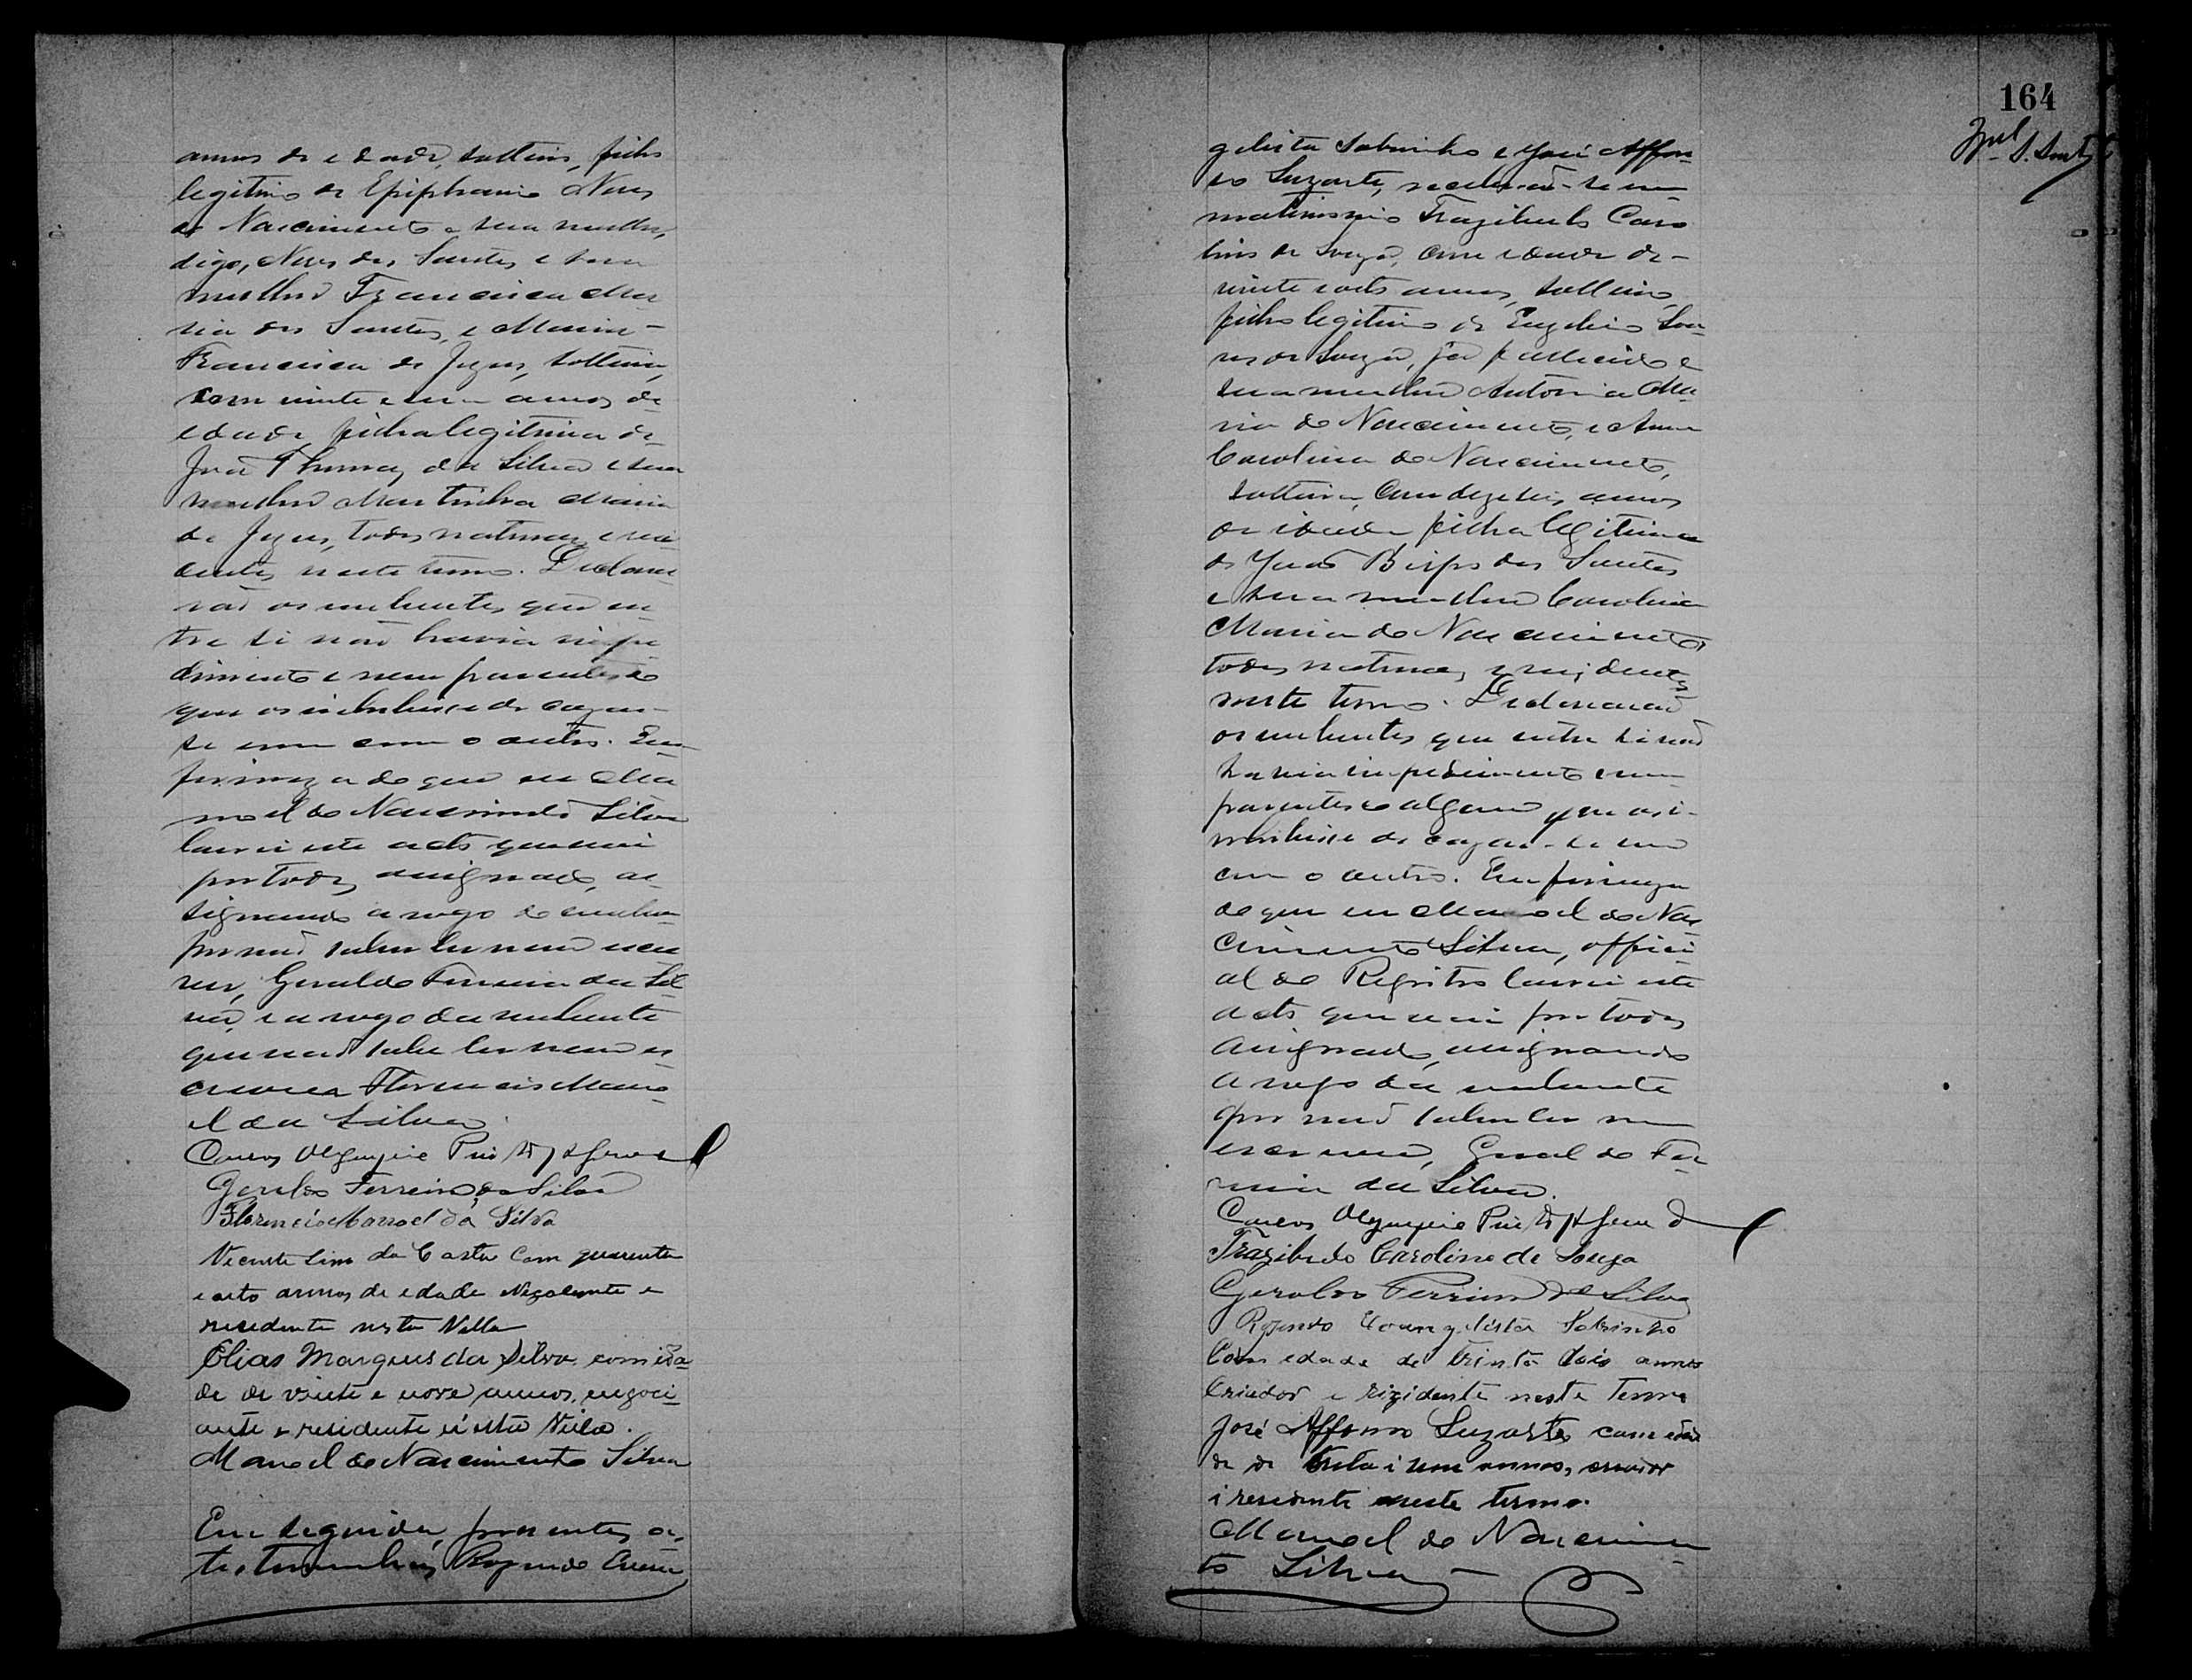 annos de edade, solteiro, filho
legitimo de Epiphanio Neves
do Nascimento e sua mulher,
digo, Neves dos Santos e sua
mulher Francisca Ma
ria dos Santos, e Maria
Francisca de Jezus, solteira,
com vinte e um annos de
edade, filha legitima de
José Thomaz da Silva e sua
mulher Martinha Maria
de Jezus, todos naturaes e rezi
dentes neste termo. Declara
rão os nubentes que en
tre si não havia impe
dimento e nem parentesco
que os inhibisse de cazar-
se um com o outro. Em
firmeza do que eu Ma
noel do Nascimento Silva
lavrei este acto que vai
por todos assignado, as
signando a rogo do nubente
por não saber ler nem escre
ver, Geraldo Ferreira da Sil
va, e a rogo da nubente
que não sabe ler nem es
crever Florencio Mano
el da Silva.
Carlos Olympio
Geraldo Ferreira da Silva
Florencio Manoel da Silva
Vicente Lino da Costa com quarenta
e oito annos de edade Negociante e
residente nesta Villa
Elias Marques da Silva, com ida
de de vinte e nove annos, negoci
ante e residente n'esta Villa.
Manoel do Nascimento Silva
Em seguida, presentes as
testemunhas Rozendo Evan
164
gelista Sobrinho e José Affon
so Luzarte, receberão-se em
matrimonio Trazibulo Caro
lino de Souza, com edade de
vinte e oito annos, solteiro,
filho legitimo de Eugenio
de Souza, já fallecido e
sua mulher Antonia Ma
ria do Nascimento, e Anna
Carolina do Nascimento,
solteira, com dezeseis annos
de idade filha legitima
de João Bispo dos Santos
e sua mulher Carolina
Maria do Nascimento,
todos naturaes e rezidentes
neste termo. Declararão
os nubentes que entre si não
havia impedimento e nem
parentesco algum que os i-
nhibisse de cazar-se um
com o outro. Em firmeza
do que eu Manoel do Nas
cimento Silva, offici
al do Registro lavrei este
acto que vai por todos
assignado, assignando
a rogo da nubente
por não saber ler nem
escrever, Geraldo Fer
reira da Silva.
Carlos Olympio
Trazibulo Carolino de Souza
Geraldo Ferreira da Silva
Rozendo Evangelista Sobrinho
Com edade de trinta dois annos
Criador e rizidente neste Termo
José Affonso Luzarte, com eda
de de trinta i um annos, criador
i residente neste termo.
Manoel do Nascimen
to Silva